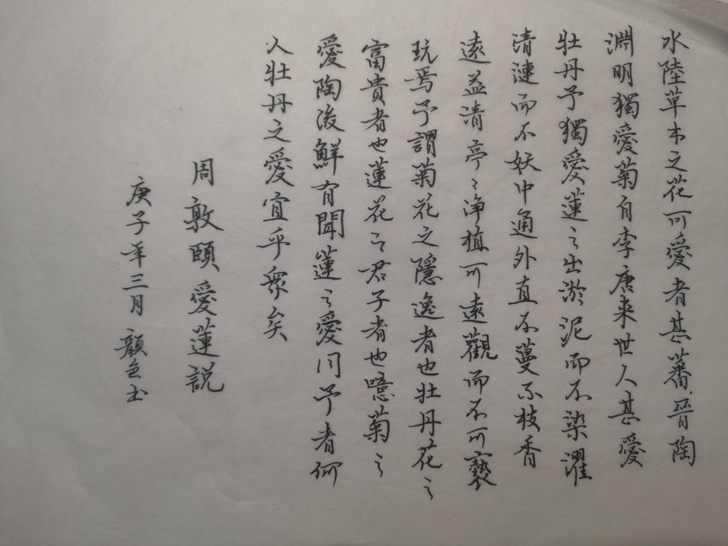 水陸草木之花可愛者甚蕃晉陶
淵明獨愛菊自李唐来世人甚愛
牡丹予獨愛蓮之出淤泥而不染濯
清漣而不妖中通外直不蔓不枝香
遠益清亭〻净植可遠觀而不可褻
玩焉予謂菊花之隱逸者也牡丹花之
富貴者也蓮花之君子者也噫菊之
愛陶後鮮有聞蓮之愛同予者何
人牡丹之愛宜乎眾矣
周敦頤愛蓮説
庚子年三月顏